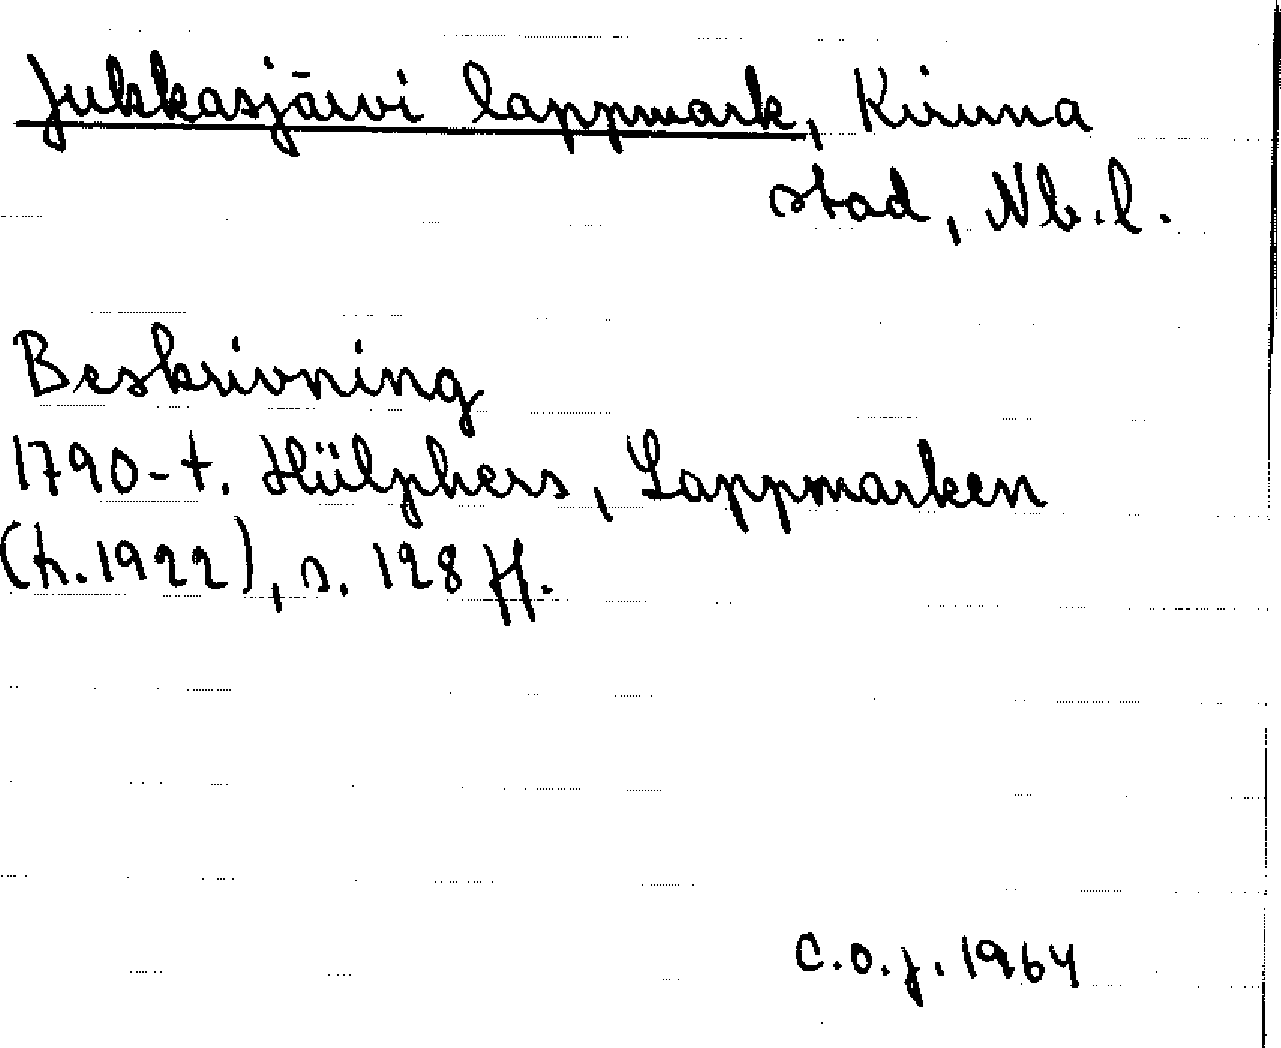 Jukkasjärvi lappmark, Kiruna
stad, Nb.l.
Beskrivning
1790-t. Hülphers, Lappmarken
(h.1922), s. 128 ff.
C.O.J. 1964